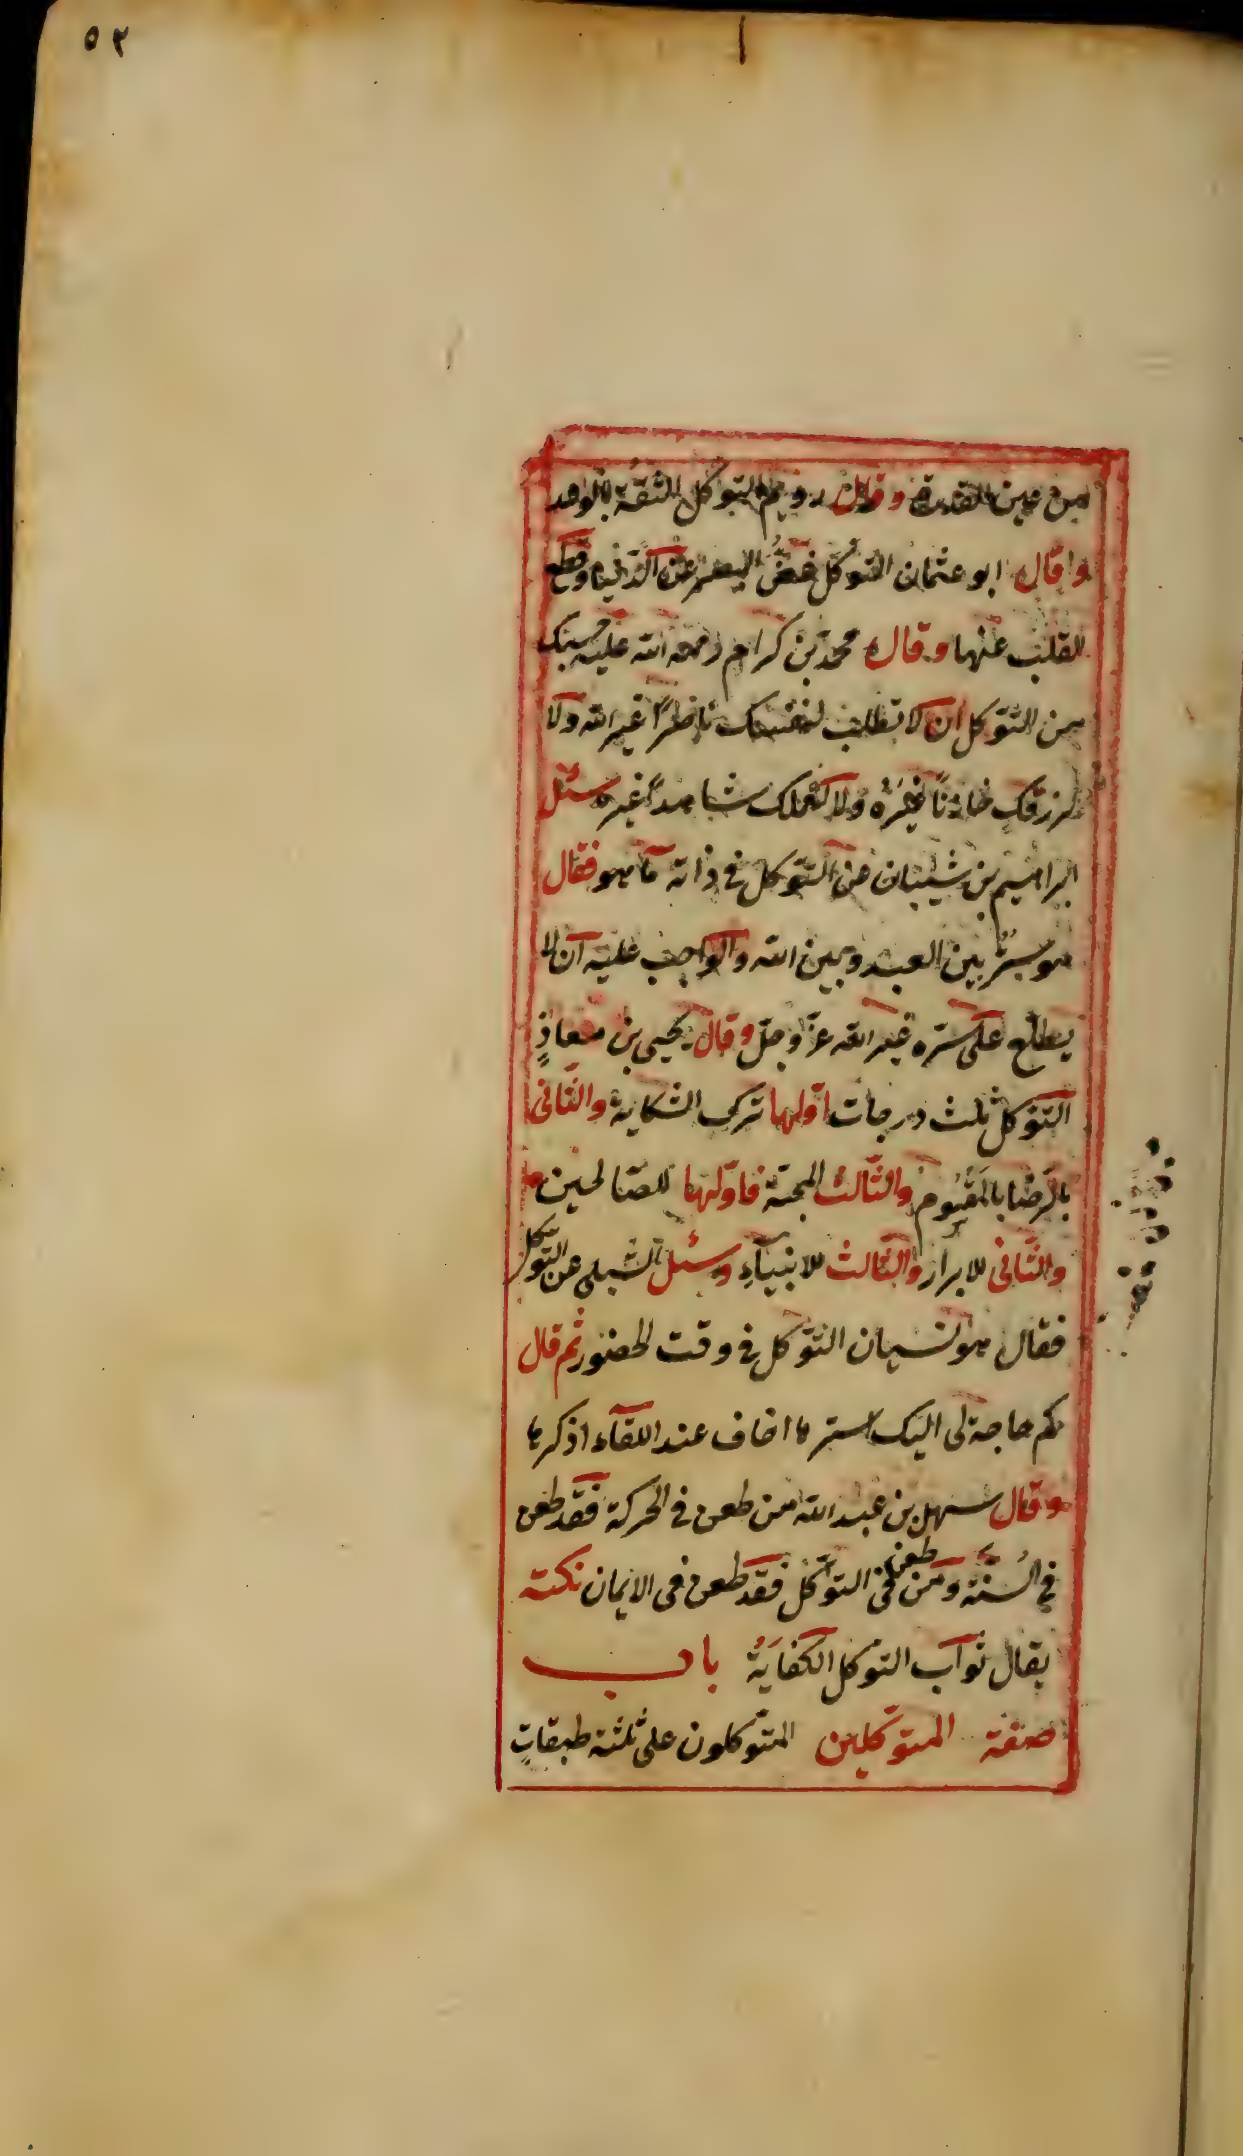 ٥٢
من عين القدرة وقال رويم التوكل الثقة بالوعد
وقال ابو عثمان التوكل غضّ البصر عن الدّنيا وقطع
القلب عنها وقال محمد بن كرام رحمة الله عليه حسبك
من التّوكل ان لا تطلب لنفسك ناظراً غير الله ولا
لرزقك خازناً غيره ولا لعملك شاهداً غيره سئل
ابراهيم بن شيبان عن التّوكل في ذاته ما هو فقال
هو سرّ بين العبد وبين الله والواجب عليه ان لا
يطلع على سرّه غير الله عزّ وجلّ وقال يحيى بن معاذٍ
التّوكل ثلث درجات اوّلها ترك الشكاية والثّانى
بالرّضا بالمقسوم والثّالث المحبّة فاوّلها للصّالحين
والثّانى للابرار والثّالث للانبيآءِ وسئل الشّبلى عن التّوكل
فقال هو نسيان التّوكل في وقت الحضور ثم قال
كم حاجة لى اليك استرها اخاف عند اللقآء اذكرها
وقال سهل بن عبد الله من طعن في الحركة فقد طعن
في السّنّة ومن طعن في التّوكّل فقد طعن فى الايمان نكتة
يقال ثواب التوكل الكفاية باب
صفة المتوكّلين المتّوكلون على ثلثة طبقاتٍ